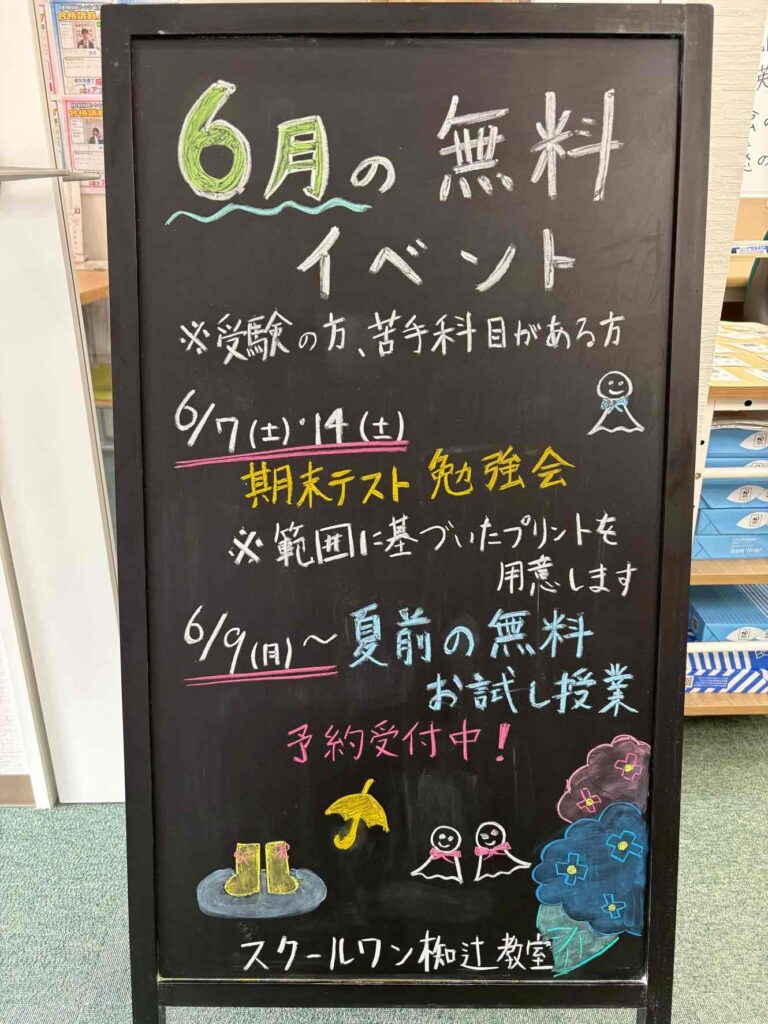 6月の無料
イベント
※受験の方、苦手科目がある方
6/7(土)・14(土)
期末テスト勉強会
※範囲に基づいたプリントを
用意します
6/9(月)～夏前の無料
お試し授業
予約受付中！
スクールワン椥辻教室
合格請負
合格請負